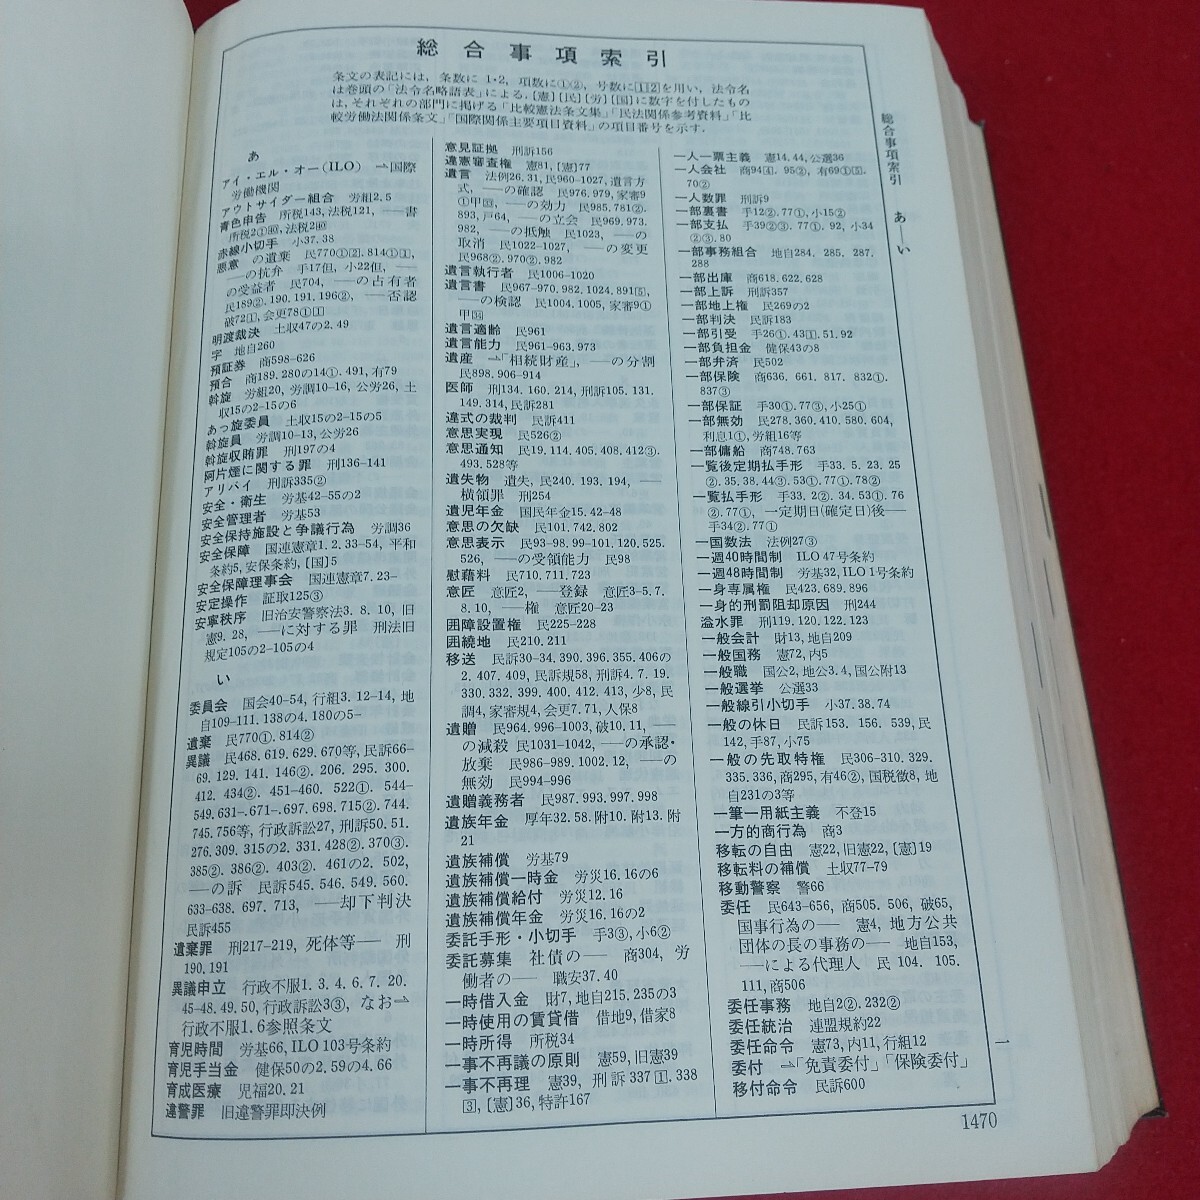 総合事項索引
条文の表記には，条数に 1･2，項数に①②，号数に1 2を用い，法令名
は巻頭の「法令名略語表」による．[憲][民][労][国]に数字を付したもの
は，それぞれの部門に掲げる「比較憲法条文集」「民法関係参考資料」「比
較労働法関係条文」「国際関係主要項目資料」の項目番号を示す．
あ
アイ・エル・オー(ILO) →国際
労働機関
アウトサイダー組合 労組2.5
青色申告 所税143，法税121，──書
赤線小切手 小37.38
悪意 の遺棄 民770①2．814①1，
──の抗弁 手17但，小22但，──
の受益者 民704，──の占有者
民189②．190.191.196②，──否認
破721，会更78①1
明渡裁決 土収47の2.49
字 地自260
預証券 商598-626
預合 商189.280の14①．491，有79
斡旋 労組20，労調10-16，公労26，土
収15の2-15の6
あっ旋委員 土収15の2-15の5
斡旋員 労調10-13，公労26
斡旋収賄罪 刑197の4
阿片煙に関する罪 刑136-141
アリバイ 刑訴335②
安全・衛生 労基42-55の2
安全管理者 労基53
安全保持施設と争議行為 労調36
安全保障 国連憲章1.2.33-54，平和
条約5，安保条約，[国]5
安全保障理事会 国連憲章7.23-
安定操作 証取125③
安寧秩序 旧治安警察法3.8.10，旧
憲9.28，──に対する罪 刑法旧
規定105の2-105の4
い
委員会 国会40-54，行組3.12-14，地
自109-111.138の4.180の5-
遺棄 民770①．814②
異議 民468.619.629.670等，民訴66-
69.129.141.146②．206.295.300.
412.434②．451-460.522①．544-
549.631-.671-.697.698.715②．744.
745.756等，行政訴訟27，刑訴50.51.
276.309.315の2.331.428②．370③．
385②．386②．403②．461の2.502，
──の訴 民訴545.546.549.560.
633-638.697.713，──却下判決
民訴455
遺棄罪 刑217-219，死体等── 刑
190.191
異議申立 行政不服1.3.4.6.7.20.
45-48.49.50，行政訴訟3③，なお→
行政不服1.6参照条文
育児時間 労基66，ILO 103号条約
育児手当金 健保50の2.59の4.66
育成医療 児福20.21
違警罪 旧違警罪即決例
意見証拠 刑訴156
違憲審査権 憲81，[憲]77
遺言 法例26.31，民960-1027，遺言方
式，──の確認 民976.979，家審9
①甲33，──の効力 民985.781②．
893，戸64，──の立会 民969.973.
982，──の抵触 民1023，──の
取消 民1022-1027，──の変更
民968②．970②．982
遺言執行者 民1006-1020
遺言書 民967-970.982.1024.8915，
──の検認 民1004.1005，家審9①
甲34
遺言適齢 民961
遺言能力 民961-963.973
遺産 →「相続財産」，──の分割
民898.906-914
医師 刑134.160.214，刑訴105.131.
149.314，民訴281
違式の裁判 民訴411
意思実現 民526②
意思通知 民19.114.405.408.412③．
493.528等
遺失物 遺失，民240.193.194，──
横領罪 刑254
遺児年金 国民年金15.42-48
意思の欠缺 民101.742.802
意思表示 民93-98.99-101.120.525.
526，──の受領能力 民98
慰藉料 民710.711.723
意匠 意匠2，──登録 意匠3-5.7.
8.10，──権 意匠20-23
囲障設置権 民225-228
囲繞地 民210.211
移送 民訴30-34.390.396.355.406の
2.407.409，民訴規58，刑訴4.7.19.
330.332.399.400.412.413，少8，民
調4，家審規4，会更7.71，人保8
遺贈 民964.996-1003，破10.11，──
の減殺 民1031-1042，──の承認・
放棄 民986-989.1002.12，──の
無効 民994-996
遺贈義務者 民987.993.997.998
遺族年金 厚年32.58.附10.附13.附
21
遺族補償 労基79
遺族補償一時金 労災16.16の6
遺族補償給付 労災12.16
遺族補償年金 労災16.16の2
委託手形・小切手 手3③，小6②
委託募集 社債の── 商304，労
働者の── 職安37.40
一時借入金 財7，地自215.235の3
一時使用の賃貸借 借地9，借家8
一時所得 所税34
一事不再議の原則 憲59，旧憲39
一事不再理 憲39，刑訴337 1．338
3，[憲]36，特許167
一人一票主義 憲14.44，公選36
一人会社 商944．95②，有69①5．
70②
一人数罪 刑訴9
一部裏書 手12②．77①，小15②
一部支払 手39②③．77①．92，小34
②③．80
一部事務組合 地自284.285.287.
288
一部出庫 商618.622.628
一部上訴 刑訴357
一部地上権 民269の2
一部判決 民訴183
一部引受 手26①．43 1．51.92
一部負担金 健保43の8
一部弁済 民502
一部保険 商636.661.817.832①．
837③
一部保証 手30①．77③，小25①
一部無効 民278.360.410.580.604，
利息1①，労組16等
一部傭船 商748.763
一覧後定期払手形 手33.5.23.25
②．35.38.44③．53①．77①．78②
一覧払手形 手33.2②．34.53①．76
②．77①，一定期日(確定日)後──
手34②．77①
一国数法 法例27③
一週40時間制 ILO 47号条約
一週48時間制 労基32，ILO 1号条約
一身専属権 民423.689.896
一身的刑罰阻却原因 刑244
溢水罪 刑119.120.122.123
一般会計 財13，地自209
一般国務 憲72，内5
一般職 国公2，地公3.4，国公附13
一般選挙 公選33
一般線引小切手 小37.38.74
一般の休日 民訴153.156.539，民
142，手87，小75
一般の先取特権 民306-310.329.
335.336，商295，有46②，国税徴8，地
自231の3等
一筆一用紙主義 不登15
一方的商行為 商3
移転の自由 憲22，旧憲22，[憲]19
移転料の補償 土収77-79
移動警察 警66
委任 民643-656，商505.506，破65，
国事行為の── 憲4，地方公共
団体の長の事務の── 地自153，
──による代理人 民104.105.
111，商506
委任事務 地自2②．232②
委任統治 連盟規約22
委任命令 憲73，内11，行組12
委付 →「免責委付」「保険委付」
移付命令 民訴600
総合事項索引
あ―い
一
1470